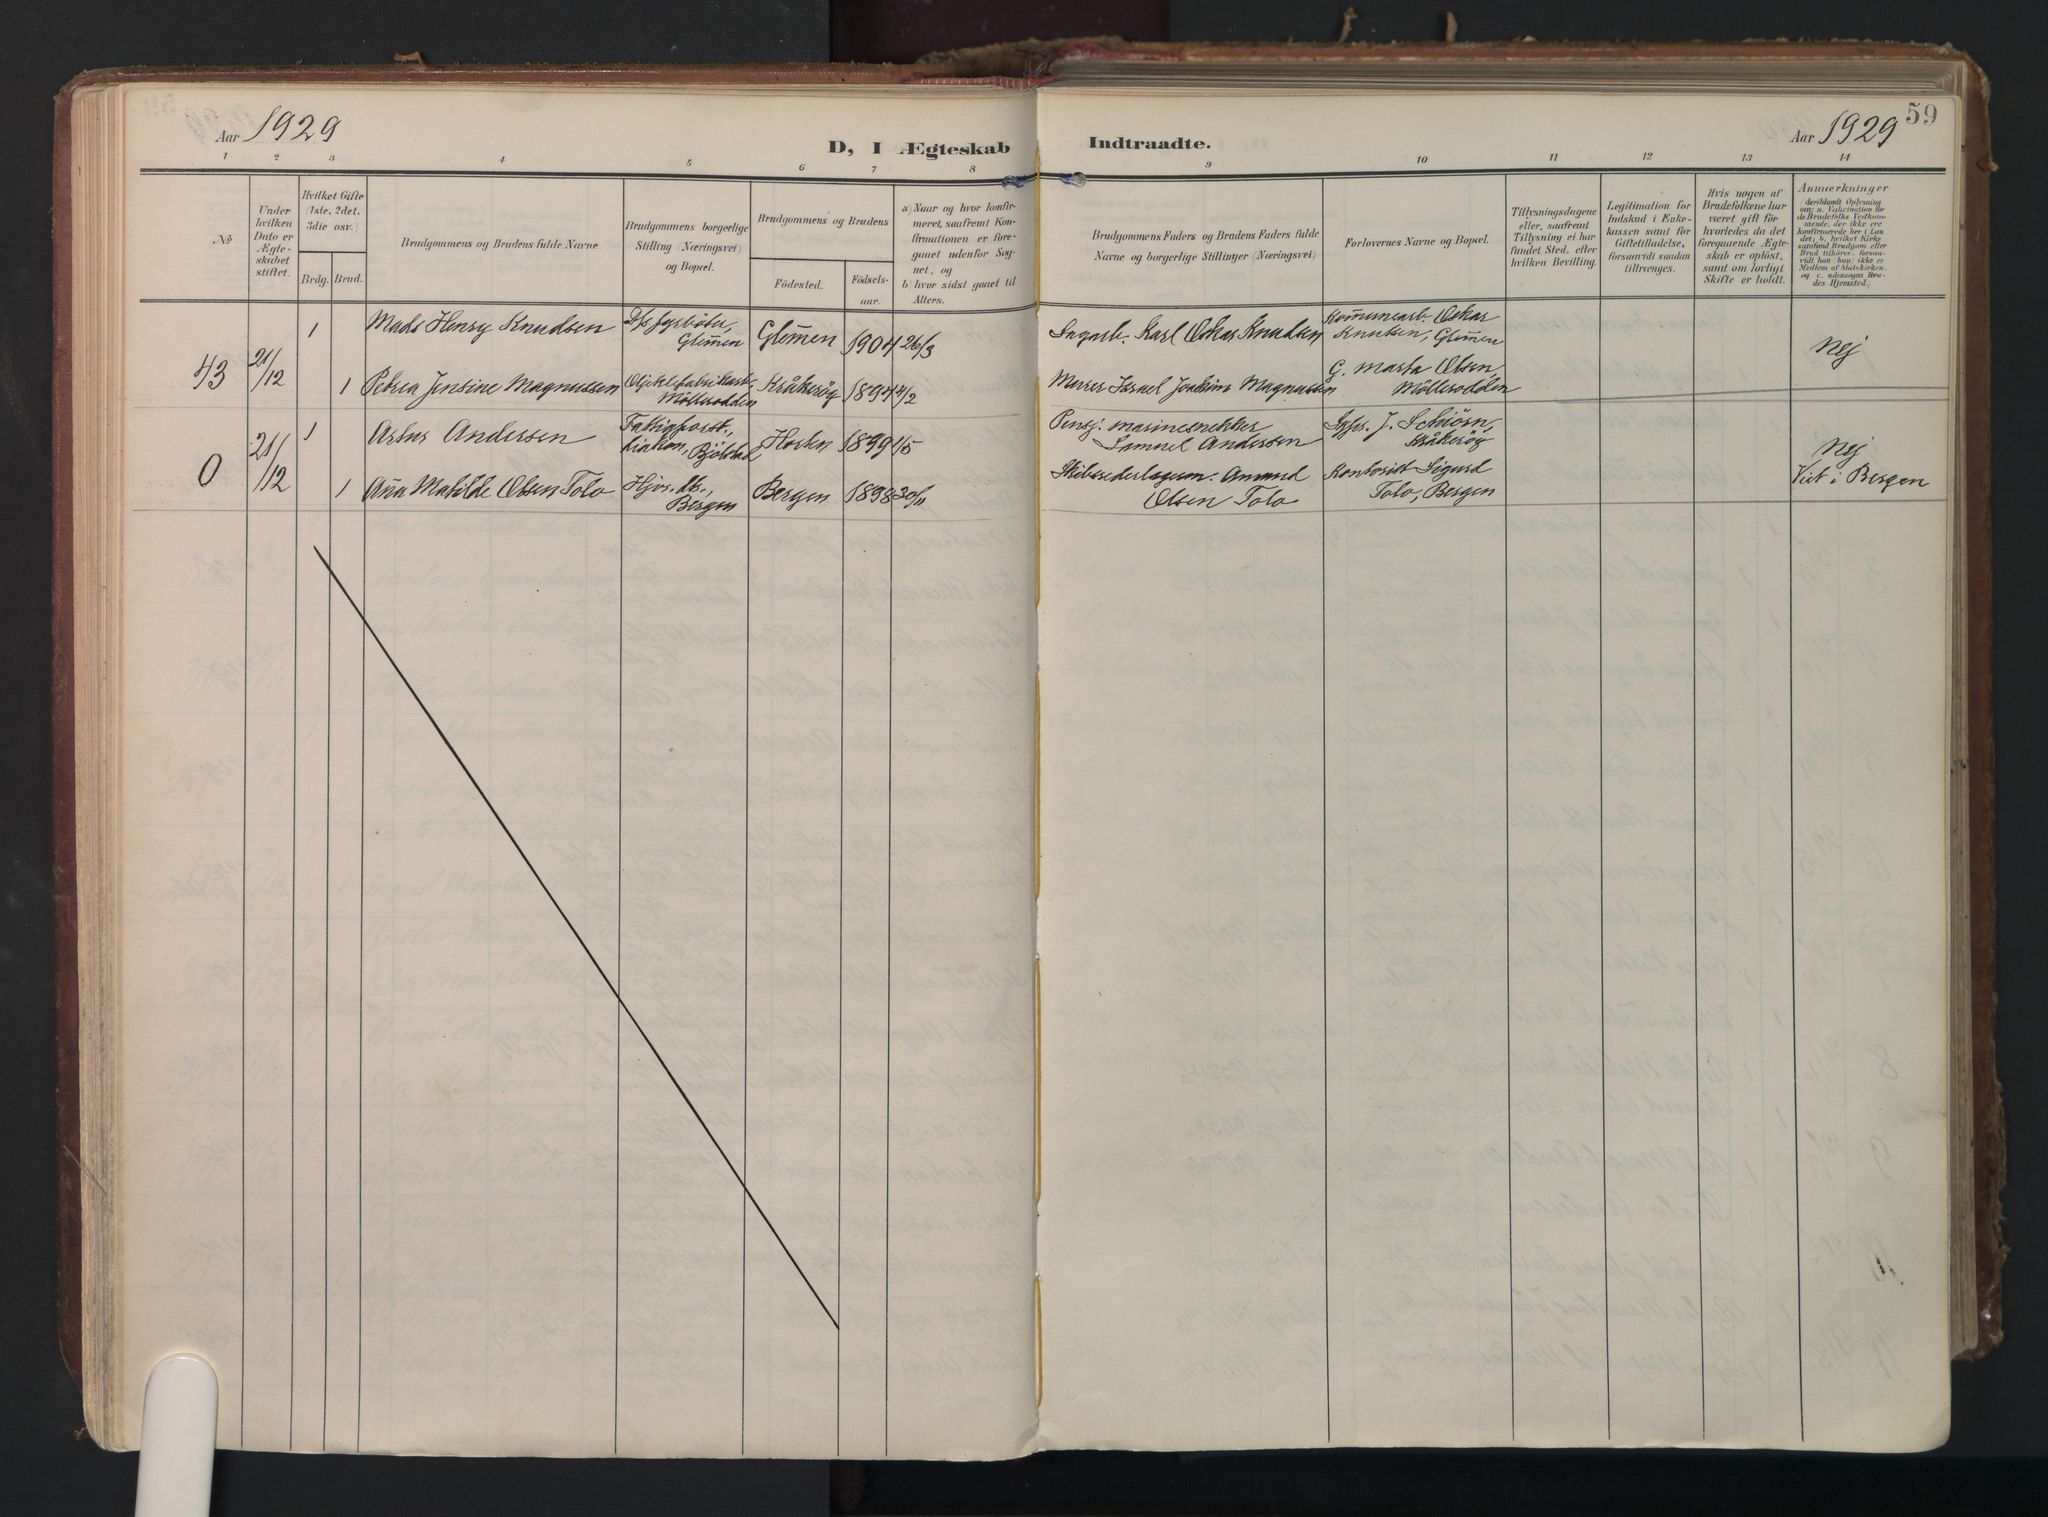 Aar 1929
D, I Ægteskab
Indtraadte.
Aar 1929
59
1 2 3 4 5 6 7 8
9 10 11 12 13 14
No
Under
hvilken
Dato er
Ægte-
skabet
stiftet.
Hvilket Gifte
(1ste, 2det,
3die osv.)
Brdg. Brud.
Brudgommens og Brudens fulde Navne
Brudgommens borgerlige
Stilling (Næringsvei)
og Bopæl.
Brudgommens og Brudens
Födested.
Födsels-
aar.
a) Naar og hvor konfir-
meret, saafremt Kon-
firmationen er fore-
gaaet udenfor Sog-
net, og
b) hvor sidst gaaet til
Alters.
Brudgommens Faders og Brudens Faders fulde
Navne og borgerlige Stillinger (Næringsvei)
Forlovernes Navne og Bopæl.
Tillysningsdagene
eller, saafremt
Tillysning ei har
fundet Sted, efter
hvilken Bevilling.
Legitimation for
Indskud i Enke-
kassen samt for
Giftetilladelse,
forsaavidt saadan
tiltrænges.
Hvis nogen af
Brudefolkene har
været gift för,
hvorledes da det
foregaaende Ægte-
skab er oplöst,
samt om lovligt
Skifte er holdt.
Anmærkninger
(deriblandt Oplysning
om: a. Vakcination for
de Brudefolks Vedkom-
mende, der ikke ere
konfirmerede her i Lan-
det; b. hvilket Kirke-
samfund Brudgom eller
Brud tilhörer, forsaa-
vidt han (hun) ikke er
Medlem af Statskirken,
og c. udensogns Bru-
des Hjemsted.)
43 21/12
1 Mads Henry Knudsen
Glemen
Glemen 1904 26/3
Karl Oskar Knudsen
Kommunearb. Oskar
Knutsen, Glemen
nej
1 Petrea Jensine Magnussen
Møllerodden
Kråkerøy 1894 4/2
Murer Israel Joakim Magnussen
G. Marta Olsen,
Møllerodden
0 21/12
1 Artur Andersen
Fattigforst.,
Bjölstad
Horten 1899 1/5
Pensj. marinesnekker
Samuel Andersen
J. Schiörn,
Kråkeröy
nej
Viet i Bergen
1 Anna Matilde Olsen Tolo
Bergen
Bergen 1898 30/11
Amund
Olsen Tolo
Kontorist Sigurd
Tolo, Bergen